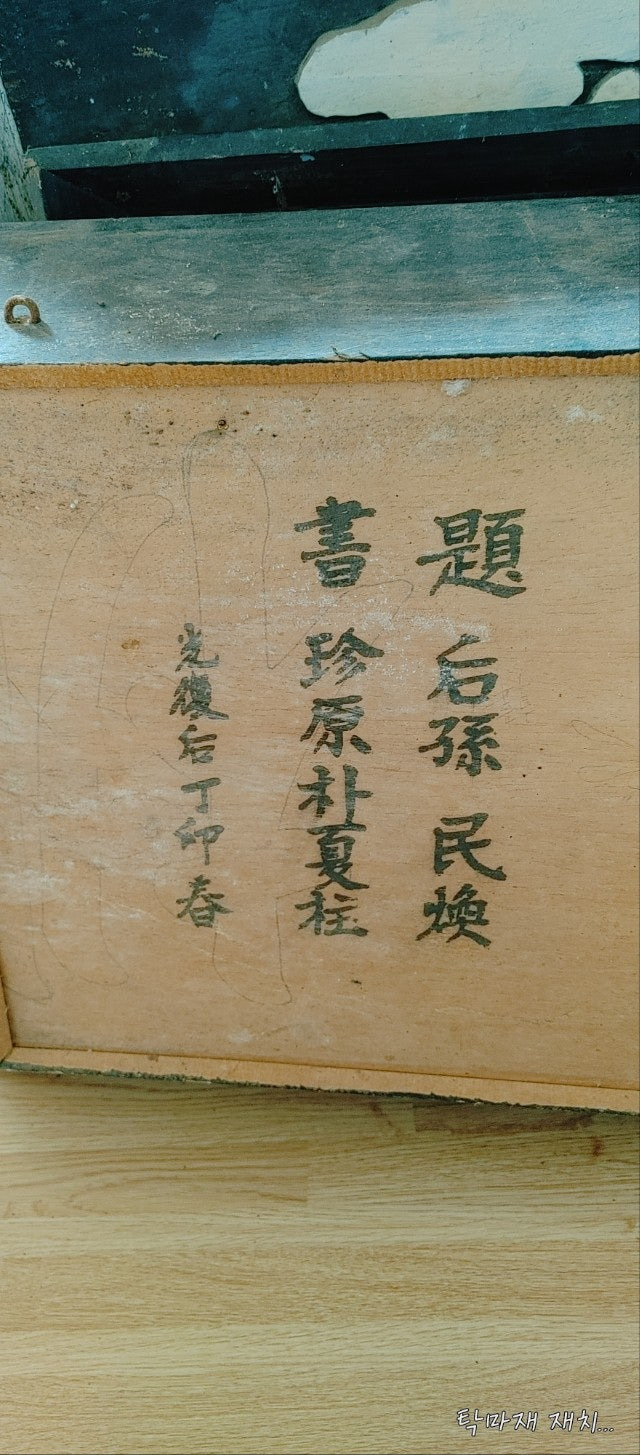 題 后孫 民煥
書 珍原朴夏柱
光復后丁卯春
탁마재 재치...